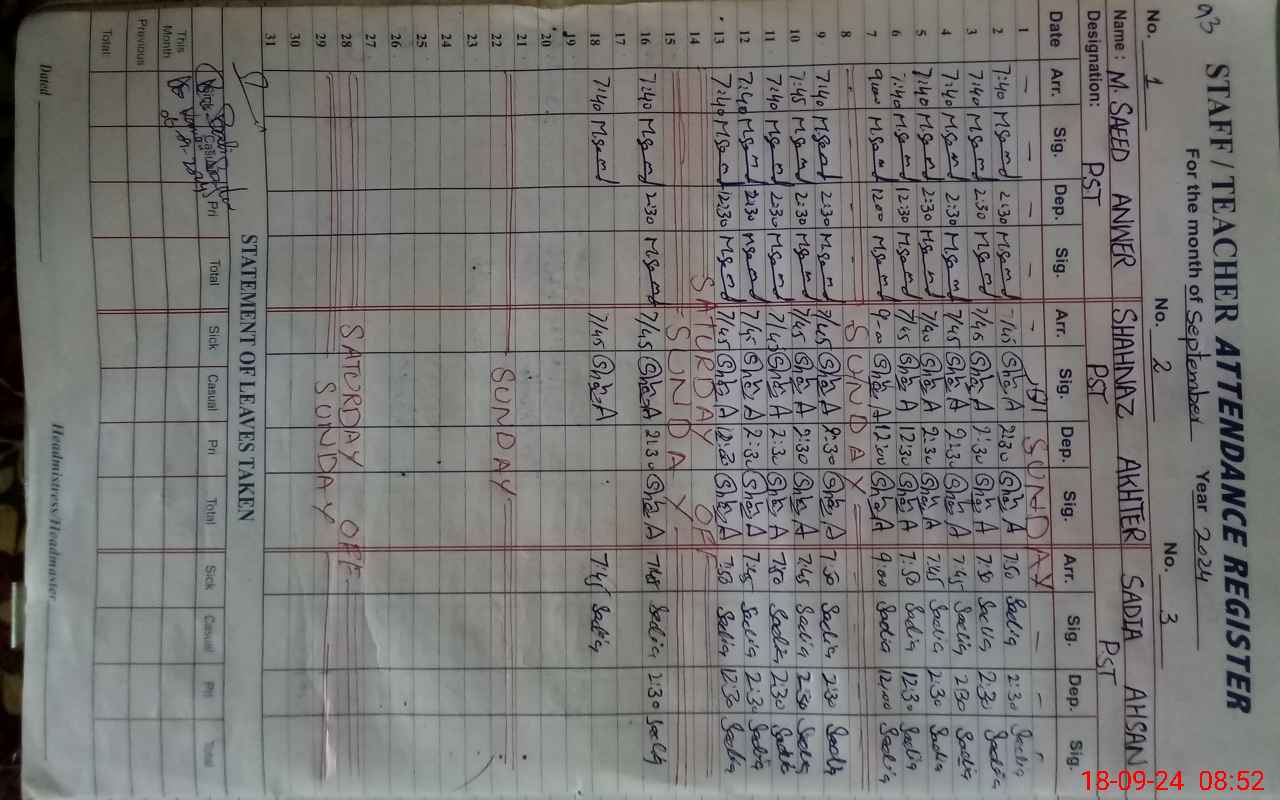 93
STAFF / TEACHER ATTENDANCE REGISTER
For the month of September Year 2024
No. 1 No. 2 No. 3
Name : M. SAEED ANWER SHAHNAZ AKHTER SADIA AHSAN
Designation: PST PST PST
Date Arr. Sig. Dep. Sig. Arr. Sig. Dep. Sig. Arr. Sig. Dep. Sig.
1 — — — — — SUNDAY — —
2 7:40 Msaeed 2:30 Msaeed 7:45 Sha A 2:30 Sha A 7:50 Sadia 2:30 Sadia
3 7:40 Msaeed 2:30 Msaeed 7:45 Sha A 2:30 Sha A 7:50 Sadia 2:30 Sadia
4 7:40 Msaeed 2:30 Msaeed 7:45 Sha A 2:30 Sha A 7:45 Sadia 2:30 Sadia
5 7:40 Msaeed 2:30 Msaeed 7:40 Sha A 2:30 Sha A 7:45 Sadia 2:30 Sadia
6 7:40 Msaeed 12:30 Msaeed 7:45 Sha A 12:30 Sha A 7:50 Sadia 12:30 Sadia
7 9:00 Msaeed 12:00 Msaeed 9:00 Sha A 12:00 Sha A 9:00 Sadia 12:00 Sadia
8 SUNDAY
9 7:40 Msaeed 2:30 Msaeed 7:45 Sha A 2:30 Sha A 7:50 Sadia 2:30 Sadia
10 7:45 Msaeed 2:30 Msaeed 7:45 Sha A 2:30 Sha A 7:45 Sadia 2:30 Sadia
11 7:40 Msaeed 2:30 Msaeed 7:45 Sha A 2:30 Sha A 7:50 Sadia 2:30 Sadia
12 7:40 Msaeed 2:30 Msaeed 7:45 Sha A 2:30 Sha A 7:45 Sadia 2:30 Sadia
13 7:40 Msaeed 12:30 Msaeed 7:45 Sha A 12:30 Sha A 7:50 Sadia 12:30 Sadia
14 SATURDAY OFF
15 SUNDAY
16 7:40 Msaeed 2:30 Msaeed 7:45 Sha A 2:30 Sha A 7:45 Sadia 2:30 Sadia
17
18 7:40 Msaeed 7:45 Sha A 7:45 Sadia
19
20
21
22 SUNDAY
23
24
25
26
27
28 SATURDAY OFF
29 SUNDAY
30
31
STATEMENT OF LEAVES TAKEN
Casual Pri Total Sick Casual Pri Total Sick Casual Pri Total
This Month
Previous
Total
Dated Headmistress/Headmaster
18-09-24 08:52